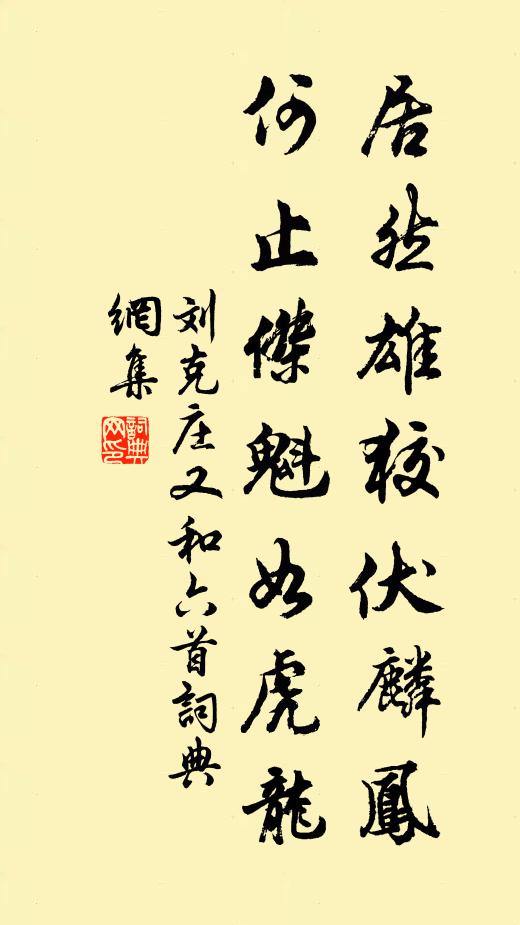 居然雄狡伏麟鳳
何止傑魁如虎龍
刘克庄又和六首詞典
網集
詞典網印